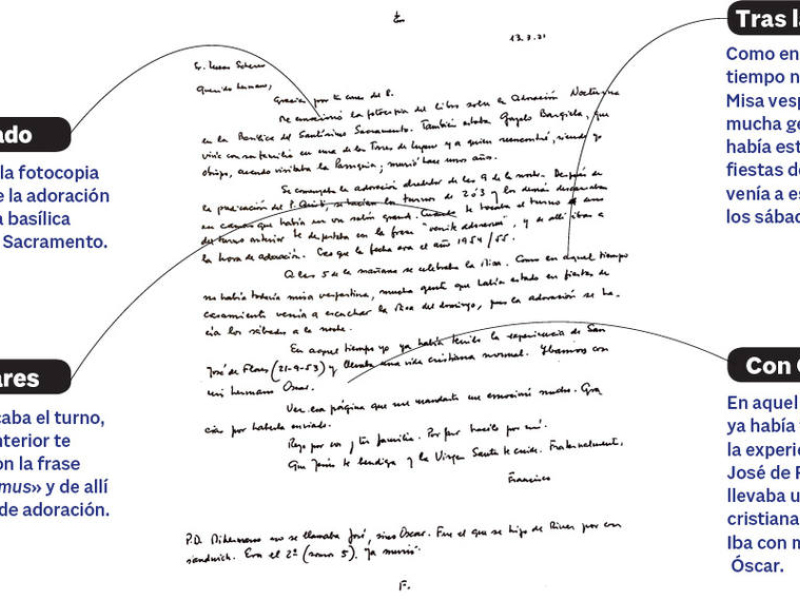 13.3.21
Querido hermano,
Gracias por tu correo del 8.
Me emocionó la fotocopia del libro sobre la Adoración Nocturna
en la Basílica del Santísimo Sacramento. También estaba
vivía con su familia en una de las Torres de Lugano y a quien reencontré, siendo yo
obispo, cuando visitaba la Parroquia; murió hace unos años.
Se comenzaba la adoración alrededor de las 9 de la noche. Después de
la predicación del P. Aristi, se hacían los turnos de 2 ó 3 y los demás descansaban
en camas que había en un salón grand. Cuando te tocaba el turno el
del turno anterior te despertaba con la frase "venite adoremus", y de allí ibas a
la hora de adoración. Creo que la fecha era el año 1954/55.
A las 5 de la mañana se celebraba la Misa. Como en aquel tiempo
no había todavía misa vespertina, mucha gente que había estado en fiestas de
casamiento venía a escuchar la Misa del domingo, pues la adoración se ha-
cía los sábados a la noche.
En aquel tiempo yo ya había tenido la experiencia de San
José de Flores (21-9-53) y llevaba una vida cristiana normal. Ibamos con
mi hermano Oscar.
Ver esa página que me mandaste me emocionó mucho. Gra
cias por haberla enviado.
Rezo por vos y tu familia. Por favor hacelo por mí.
Que Jesús te bendiga y la Virgen Santa te cuide. Fraternalmente,
Francisco
P.D. Mi hermano no se llamaba José, sino Oscar. Fue el que se hizo de River por un
sandwich. Era el 2º (somos 5). Ya murió.
F.
ado
la fotocopia
e la adoración
a basílica
Sacramento.
ares
caba el turno,
nterior te
on la frase
mus» y de allí
de adoración.
Tras la
Como en
tiempo n
Misa vesp
mucha ge
había est
fiestas de
venía a es
los sábad
Con
En aquel
ya había
la experie
José de F
llevaba u
cristiana
Iba con m
Óscar.